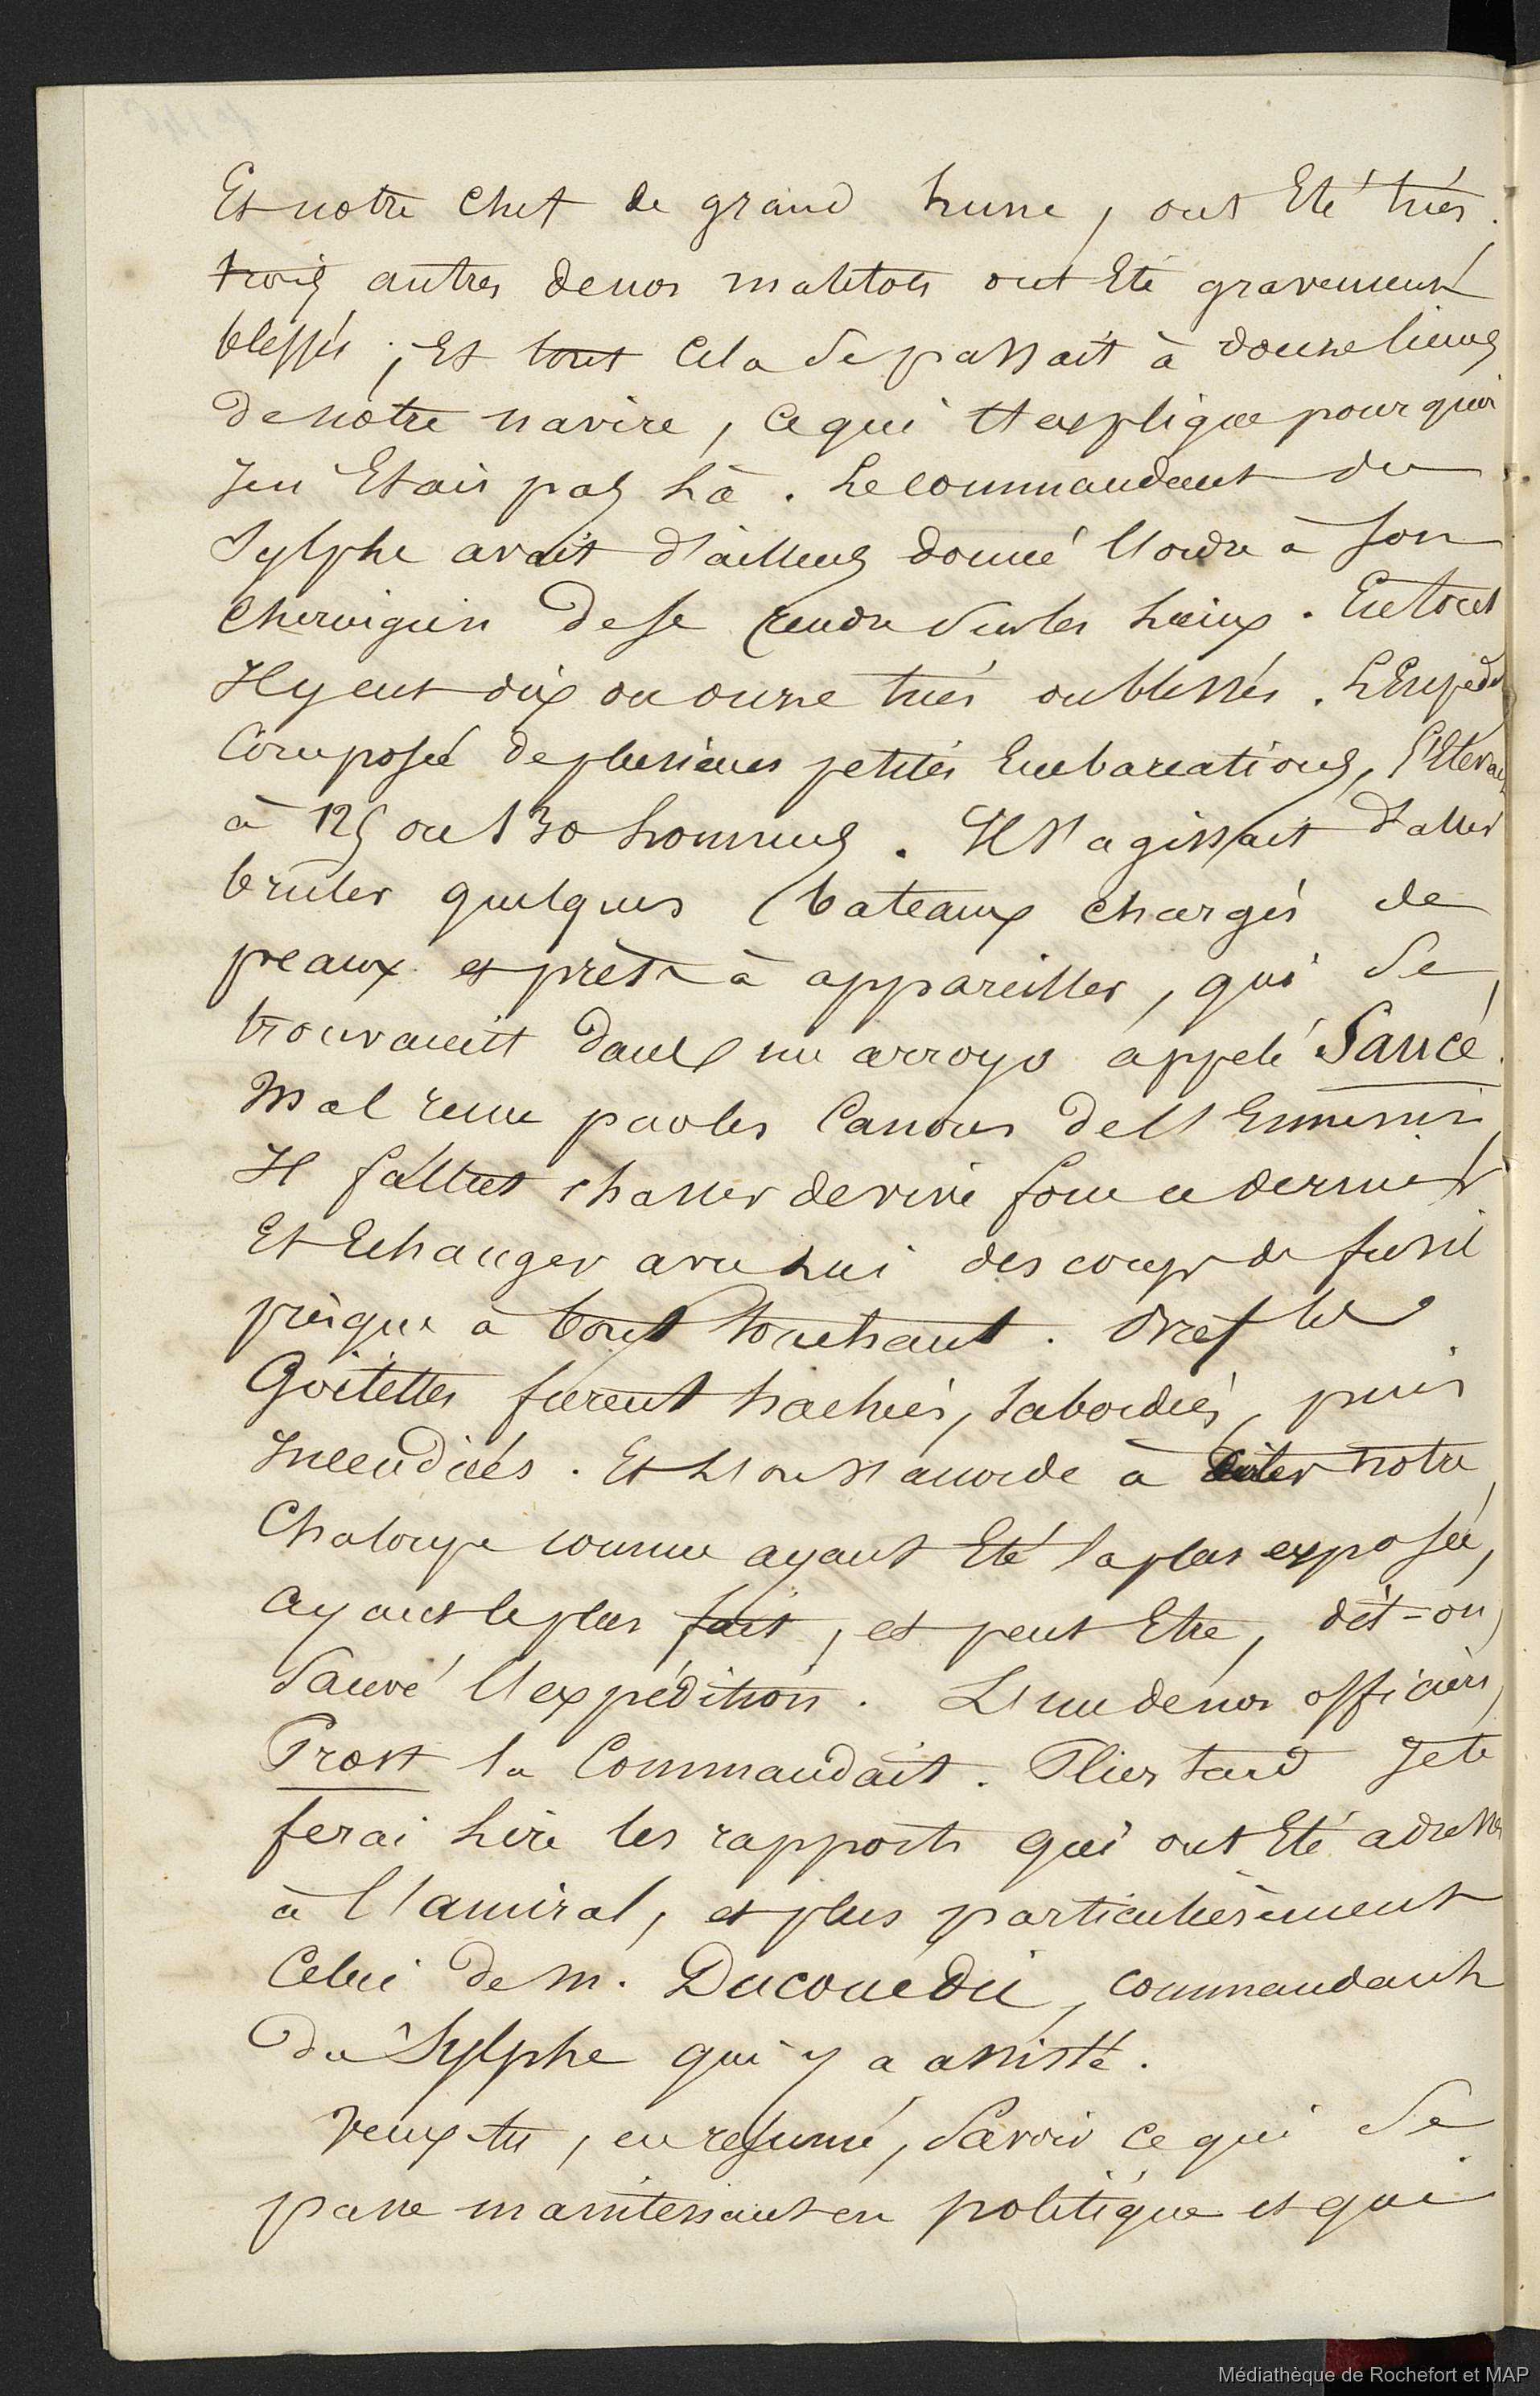 Et notre chef de grand hune, ont Eté tués.
trois autres de nos matelots ont Eté gravement
blessés ; Et tout Cela se passait à douze lieues
de notre navire, ce qui t'explique pourquoi
Je n'Etais pas là. Le commandant du
Sylphe avait d'ailleurs donné l'ordre à son
Chirurgien de se rendre sur les lieux. En tout
Il y eut dix ou onze tués ou blessés. L'Expédn
Composée de plusieurs petites Embarcations, s'Elevait
à 125 ou 130 hommes. Il s'agissait d'aller
brûler quelques bateaux chargés de
peaux et prêts à appareiller, qui se
trouvaient dans un arroyo appelé Saucé.
Mal reçu par les Canons de l'Ennemi
Il fallut chasser de vive force ce dernier
Et Echanger avec lui des coups de fusil
presque à bout touchant. Bref les
Goëlettes furent hachées, sabordées, puis
Incendiées. Et l'on s'accorde à citer notre
Chaloupe comme ayant Eté la plus exposée,
ayant le plus fait, et peut Etre, dit-on,
Sauvé l'expédition. L'un de nos officiers,
Prost la Commandait. Plus tard Je te
ferai lire les rapports qui ont Eté adressés
à l'amiral, et plus particulièrement
Celui de M. Ducouedic, commandant
du Sylphe qui y a assisté.
Veux-tu, en résumé, Savoir ce qui se
passe maintenant en politique et que
Médiathèque de Rochefort et MAP